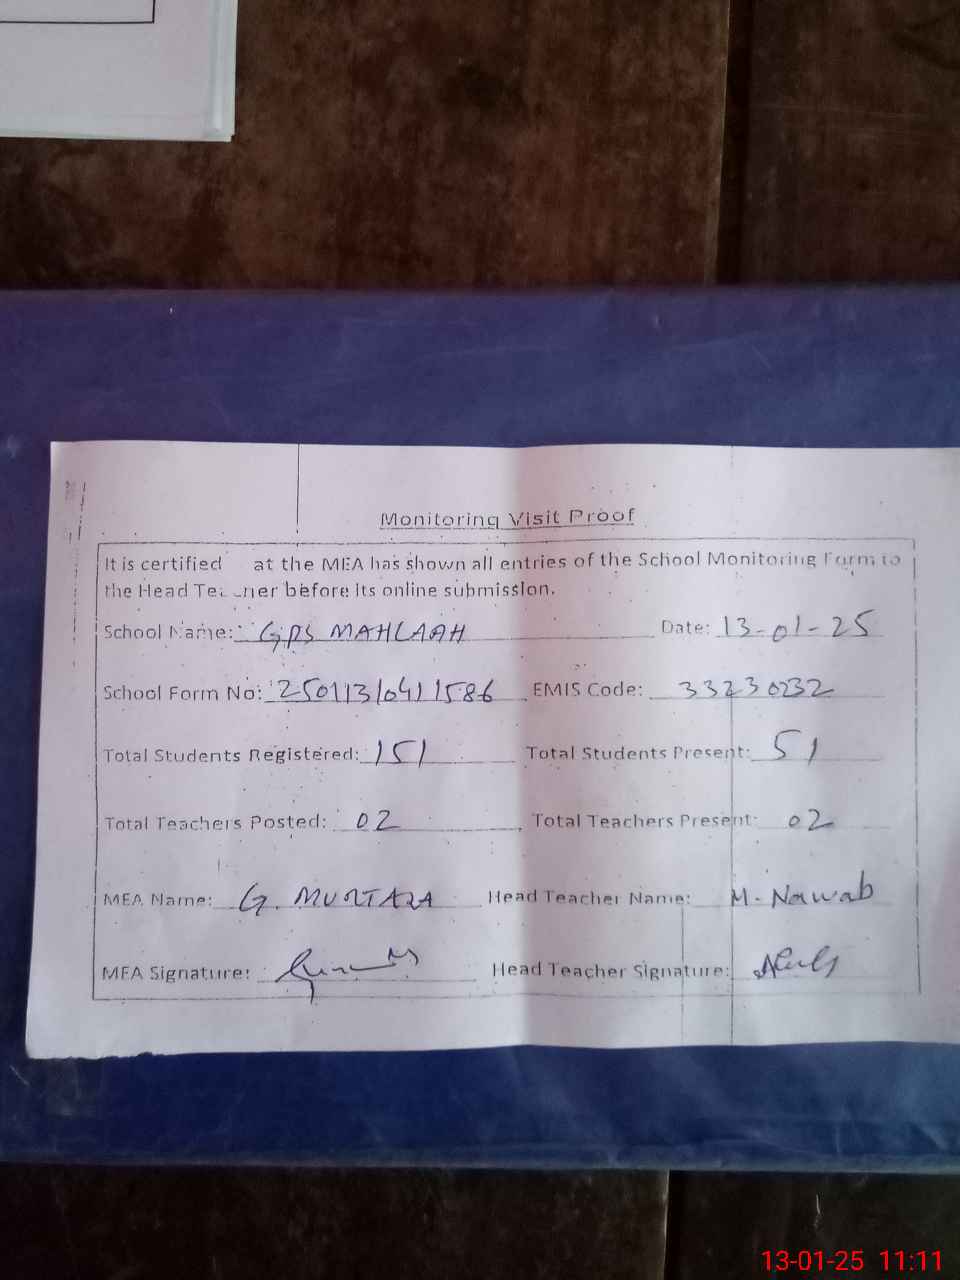 Monitoring Visit Proof
It is certified at the MEA has shown all entries of the School Monitoring Form to
the Head Teacher before its online submission.
School Name: GPS MAHLAAH Date: 13-01-25
School Form No: 250113104111586 EMIS Code: 33230232
Total Students Registered: 151 Total Students Present: 51
Total Teachers Posted: 02 Total Teachers Present: 02
MEA Name: G. MURTAZA Head Teacher Name: M. Nawab
MEA Signature: Head Teacher Signature:
13-01-25 11:11